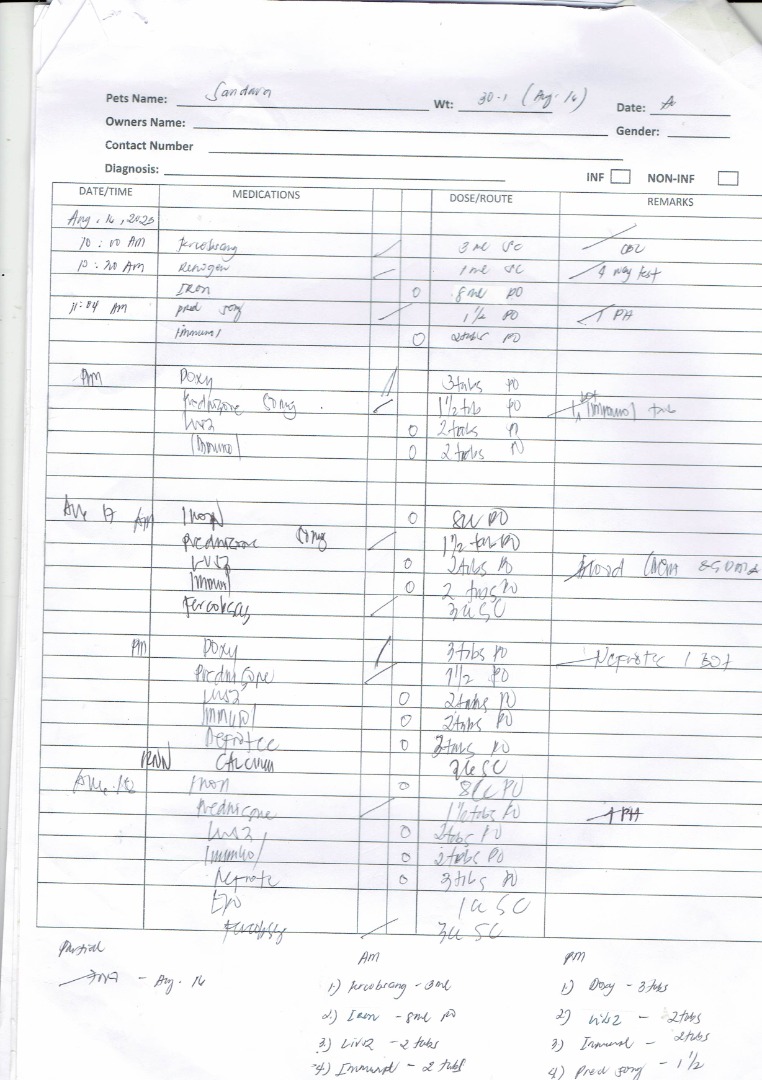 Pets Name: Sandara Wt: 30.1 (Aug. 16) Date: A
Owners Name: Gender:
Contact Number
Diagnosis: INF NON-INF
DATE/TIME MEDICATIONS DOSE/ROUTE REMARKS
Aug. 16, 2025
10:00 AM Fercobsang 3 ml SC CBC
10:30 AM 1 ml SC 4 way test
Iron 8 ml PO
11:04 AM Pred 50mg 1 1/2 PO 1 PA
Immunol 2 tabs PO
PM Doxy 3 tabs PO
Prednisone 50mg 1 1/2 tab PO
Liv52 2 tabs PO
Immunol 2 tabs PO
Aug 17 AM Iron 8cc PO
Prednisone 50mg 1 1/2 tab PO
Liv52 2 tabs PO Blood Chem
Immunol 2 tabs PO
Fercobsang 3cc SC
PM Doxy 3 tabs PO Nefrotec 1 bot
Prednisone 1 1/2 PO
Liv52 2 tabs PO
Immunol 2 tabs PO
Nefrotec 3 tabs PO
Calcium SC
Aug. 18 Iron 8cc PO
Prednisone 1 1/2 tabs PO 1 PA
Liv52 2 tabs PO
Immunol 2 tabs PO
Nefrotec 3 tabs PO
EPO 1cc SC
Fercobsang 3cc SC
Partial
- Aug. 16
AM
1.) Fercobsang - 3ml
2.) Iron - 8ml PO
3.) Liv52 - 2 tabs
4) Immunol - 2 tabs
PM
1.) Doxy - 3 tabs
2) Liv52 - 2 tabs
3) Immunol - 2 tabs
4) Pred 50mg - 1 1/2